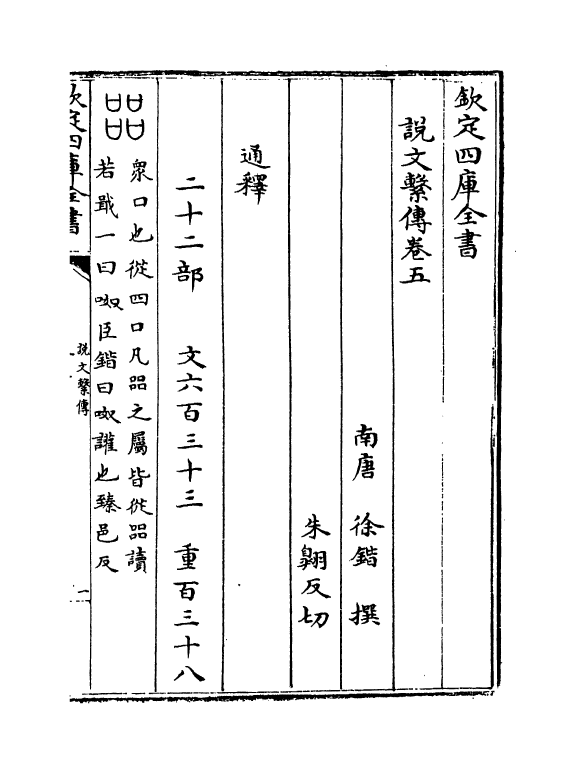 欽定四庫全書
説文繫傳卷五
南唐 徐鍇 撰
朱翶反切
通釋
二十二部 文六百三十三 重百三十八
㗊 衆口也從四口凡㗊之屬皆從㗊讀
若戢一曰呶臣鍇曰呶讙也臻邑反
欽定四庫全書
説文繫傳
一